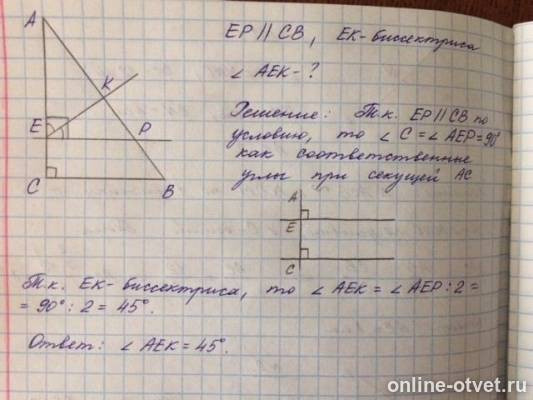 A
EP || CB, EK - биссектриса
∠ AEK - ?
K
Решение: Т.к. EP || CB по
E
P
условию, то ∠ C = ∠ AEP = 90°
как соответственные
C
B
углы при секущей AC
A
E
C
Т.к. EK - биссектриса, то ∠ AEK = ∠ AEP : 2 =
= 90° : 2 = 45°.
Ответ: ∠ AEK = 45°.
online-otvet.ru